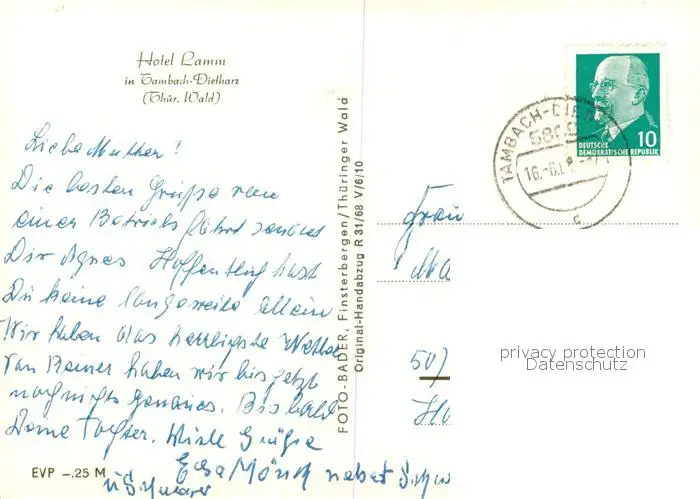 Hotel Lamm
in Tambach-Dietharz
(Thür. Wald)
Liebe Mutter!
Die besten Grüße von
einer Betriebsfahrt sendet
Dir Agnes Hoffentlich hast
Du keine Langeweile allein
Wir haben das herrlichste Wetter
Von Rainer haben wir bis jetzt
noch nichts genaues. Bis bald
Deine Tochter. Viele Grüße
Mönch nebst
EVP –.25 M
FOTO-BADER, Finsterbergen/Thüringer Wald
Original-Handabzug R 31/68 V/6/10
TAMBACH-DIET
DEUTSCHE
DEMOKRATISCHE REPUBLIK
10
Frau
507
privacy protection
Datenschutz